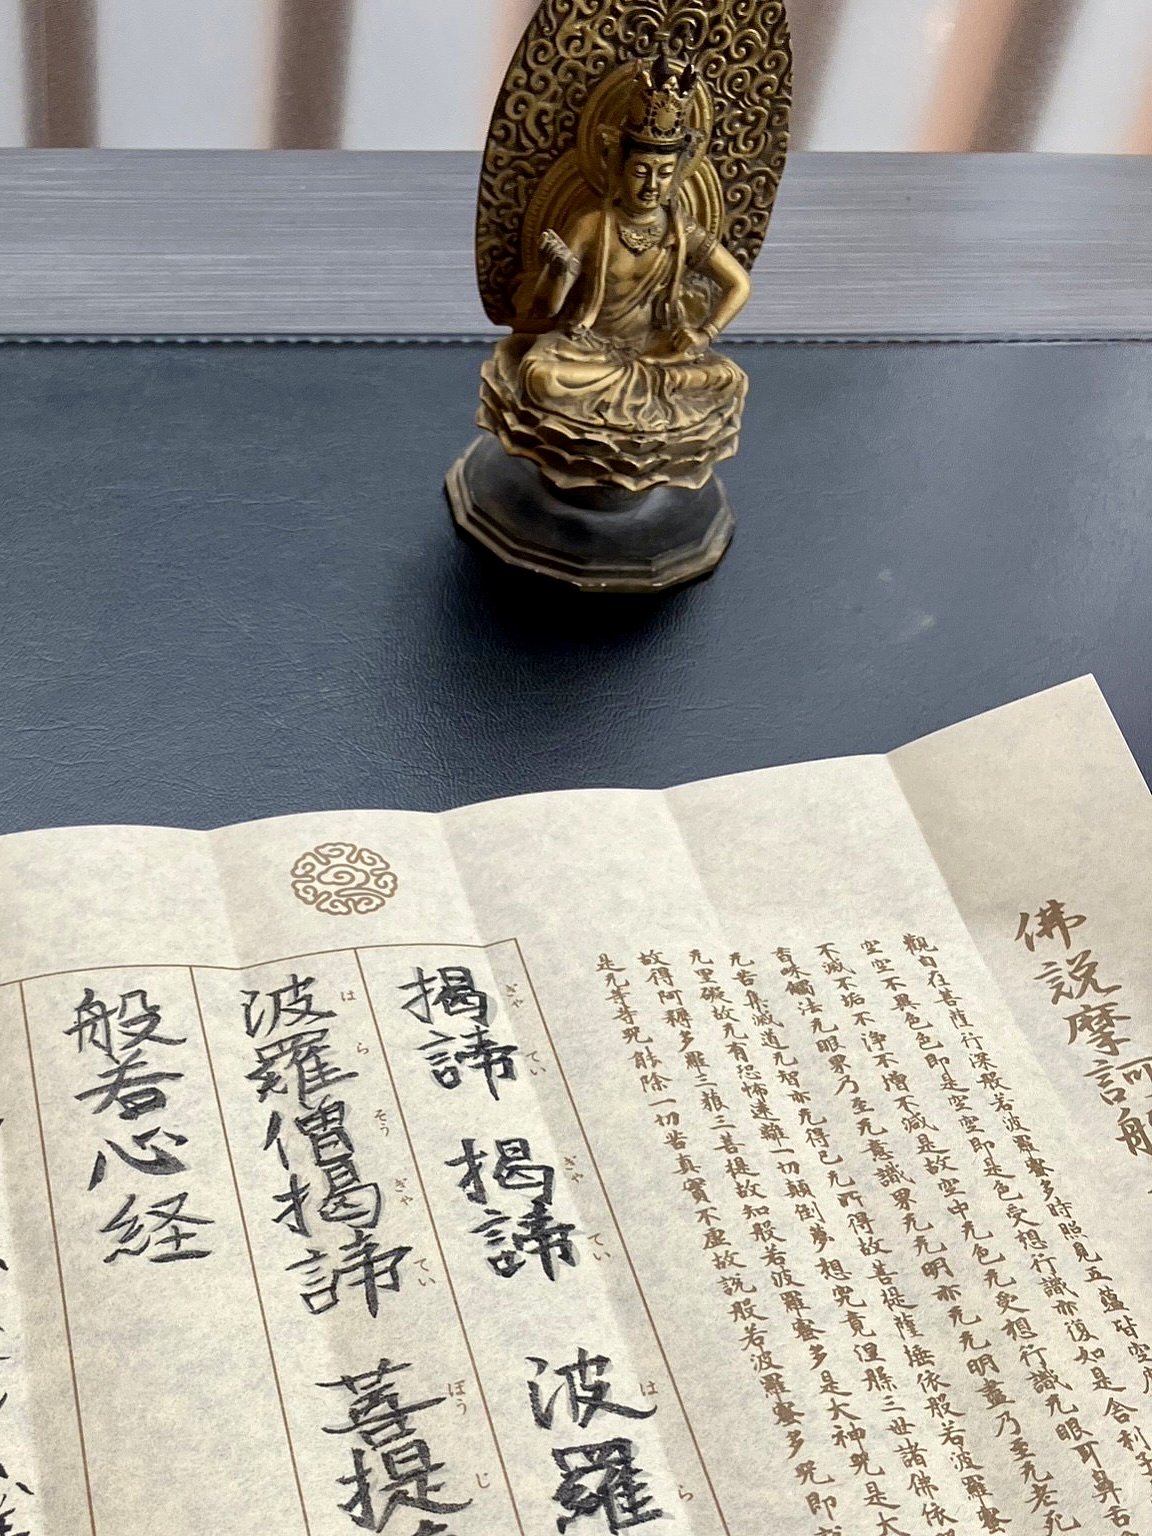 佛説摩訶般
觀自在菩薩行深般若波羅蜜多時照見五蘊皆空度
空空不異色色即是空空即是色受想行識亦復如是舍利子
不滅不垢不淨不増不減是故空中无色无受想行識无眼耳鼻舌
香味觸法无眼界乃至无意識界无无明亦无无明盡乃至无老死
无苦集滅道无智亦无得已无所得故菩提薩埵依般若波羅蜜
无罣礙故无有恐怖遠離一切顛倒夢想究竟涅槃三世諸佛依
故得阿耨多羅三藐三菩提故知般若波羅蜜多是大神咒是大
是无等等咒能除一切苦真實不虛故説般若波羅蜜多咒即
ぎゃ てい ぎゃ てい は ら
揭諦 揭諦 波羅
は ら そう ぎゃ てい ぼう じ
波羅僧揭諦 菩提
般若心経